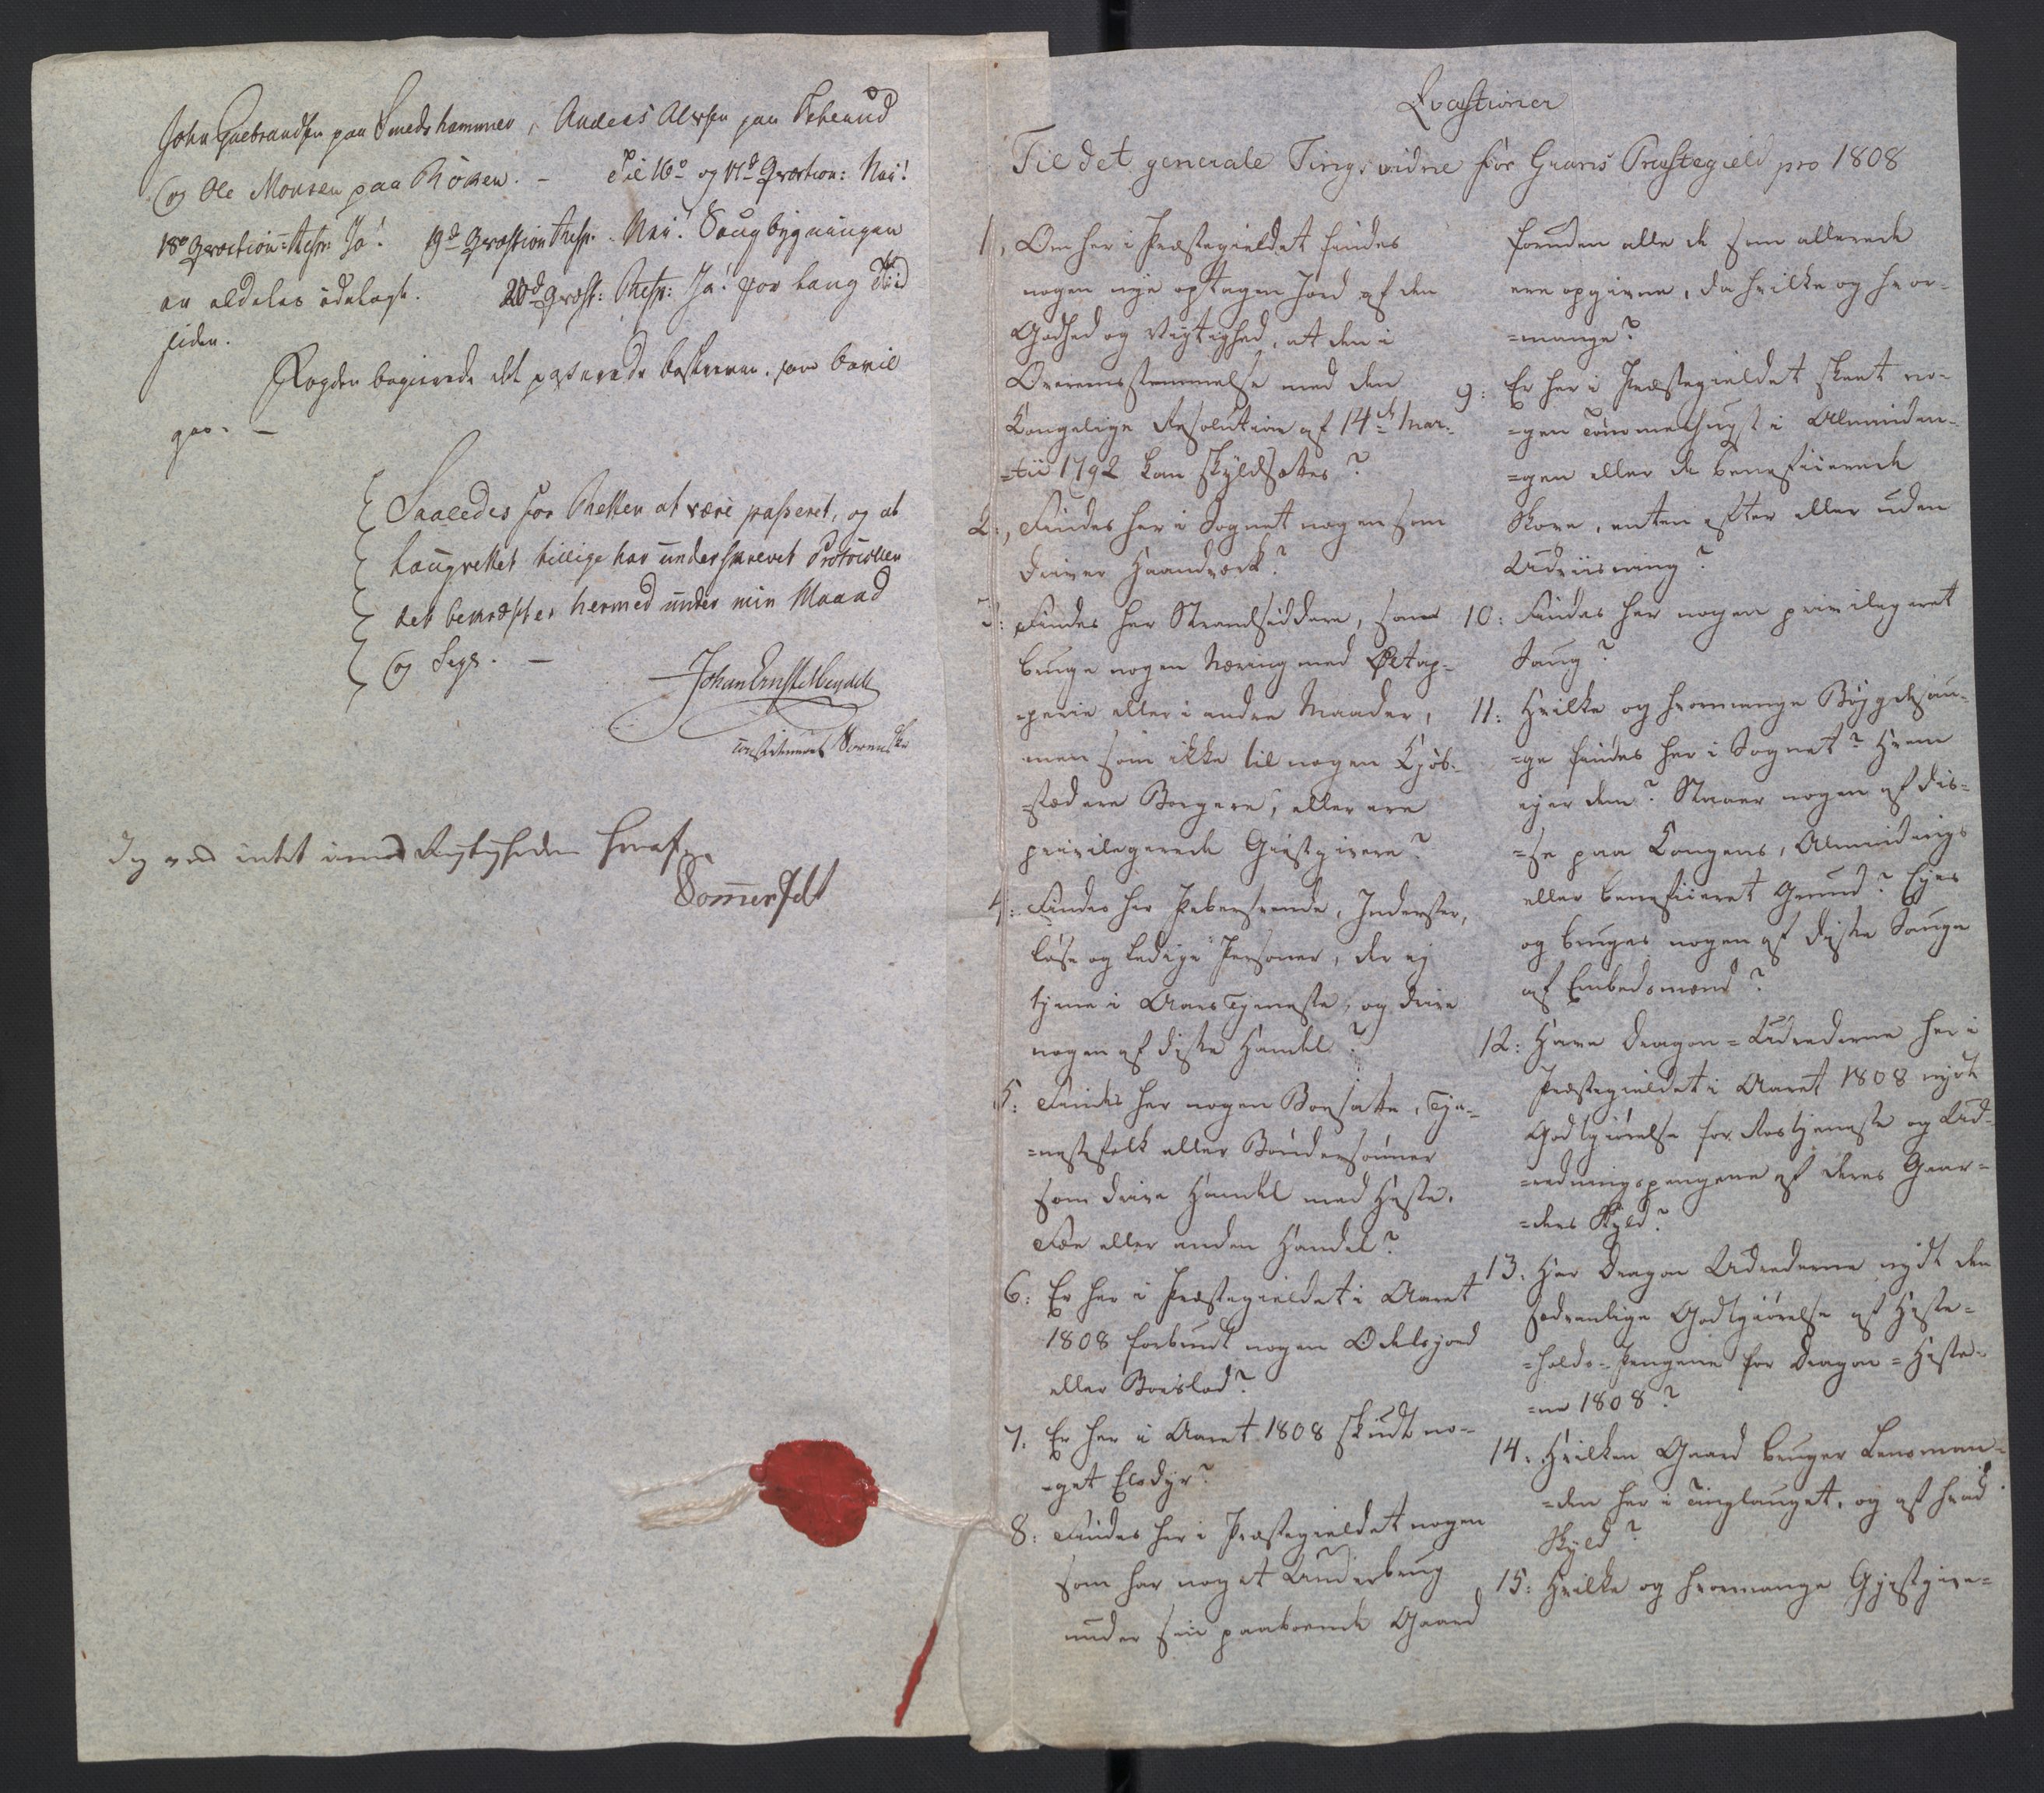 John Gulbrandsen paa Smedshammer, Anders Alersen paa
og Ole Monsen paa Röken. – Til 16de og 17de Qvæstion: Nei!
18de Qvæstion: Resp: Ja! 19de Qvæstion Resp: Nei! Saugbygningen
er aldeles ödelagt. 20de Qvæst: Resp: Ja! for lang Tiid
siden.
Fogden begierede det passerede beskreven, som bevil
ges. –
Saaledes for Retten at være passeret, og at
Laugrettet tillige har underskrevet Protocollen
det bekræftes hermed under min Haand
og Segl. –
Johan Ernst Mejdell
constitueret Sorenskr
Jeg veed intet imod Rigtigheden heraf.
Sommerfelt
Qvæstioner
Til det generale Tingsvidne for Grans Præstegield pro 1808
1, Om her i Præstegieldet findes
nogen nye optagen Jord af den
Godhed og Vigtighed, at den i
Overensstemmelse med den
Kongelige Resolution af 14de Mar-
=tii 1792 kan skyldsættes?
2:, Findes her i Sognet nogen som
driver Haandværk?
3: Findes her Strandsiddere, som
bruge nogen Næring med Øltap-
=perie eller i andre Maader,
men som ikke til nogen Kjöb-
=stæd ere Borgere, eller ere
privilegerede Giæstgivere?
4: Findes her Pebersvende, Inderster,
löse og ledige Personer, der ej
tjene i Aars Tjeneste, og drive
nogen af disse Handel?
5: Findes her nogen Bosatte, Tje-
=nestefolk eller Bönder sönner
som drive Handel med Heste,
Fæe eller anden Handel?
6: Er her i Præstegieldet i Aaret
1808 forbrudt nogen Odelsjord
eller Boeslod?
7. Er her i Aaret 1808 skudt no-
=get Elsdyr?
8: Findes her i Præstegieldet nogen
som har noget Underbrug
under sin paaboende Gaard
foruden alle de som allerede
ere opgivne, da hvilke og hvor-
=mange?
9: Er her i Præstegieldet skeet no-
=gen Tömmerhugst i Almindin-
=gen eller de beneficerede
Skove, enten efter eller uden
Udviisning?
10: Findes her nogen privilegeret
Saug?
11: Hvilke og hvormange Bygdesau-
=ge findes her i Sognet? Hvem
ejer dem? Staaer nogen af dis-
=se paa Kongens, Almindings
eller beneficeret Grund? Ejes
og bruges nogen af disse Sauge
af Embedsmænd?
12: Have Dragon=Udrederne her i
Præstegieldet i Aaret 1808 nydt
Godtgiörelse for Rostjeneste og Ud-
=redningspengene af deres Gaar-
=des Skyld?
13. Har Dragon Udrederne nydt den
sædvanlige Godtgiörelse af Heste-
=holds=Pengene for Dragon=Heste-
=ne 1808?
14. Hvilken Gaard bruger Lensman-
=den her i Tinglauget, og af hvad
Skyld?
15: Hvilke og hvormange Gjestgive-